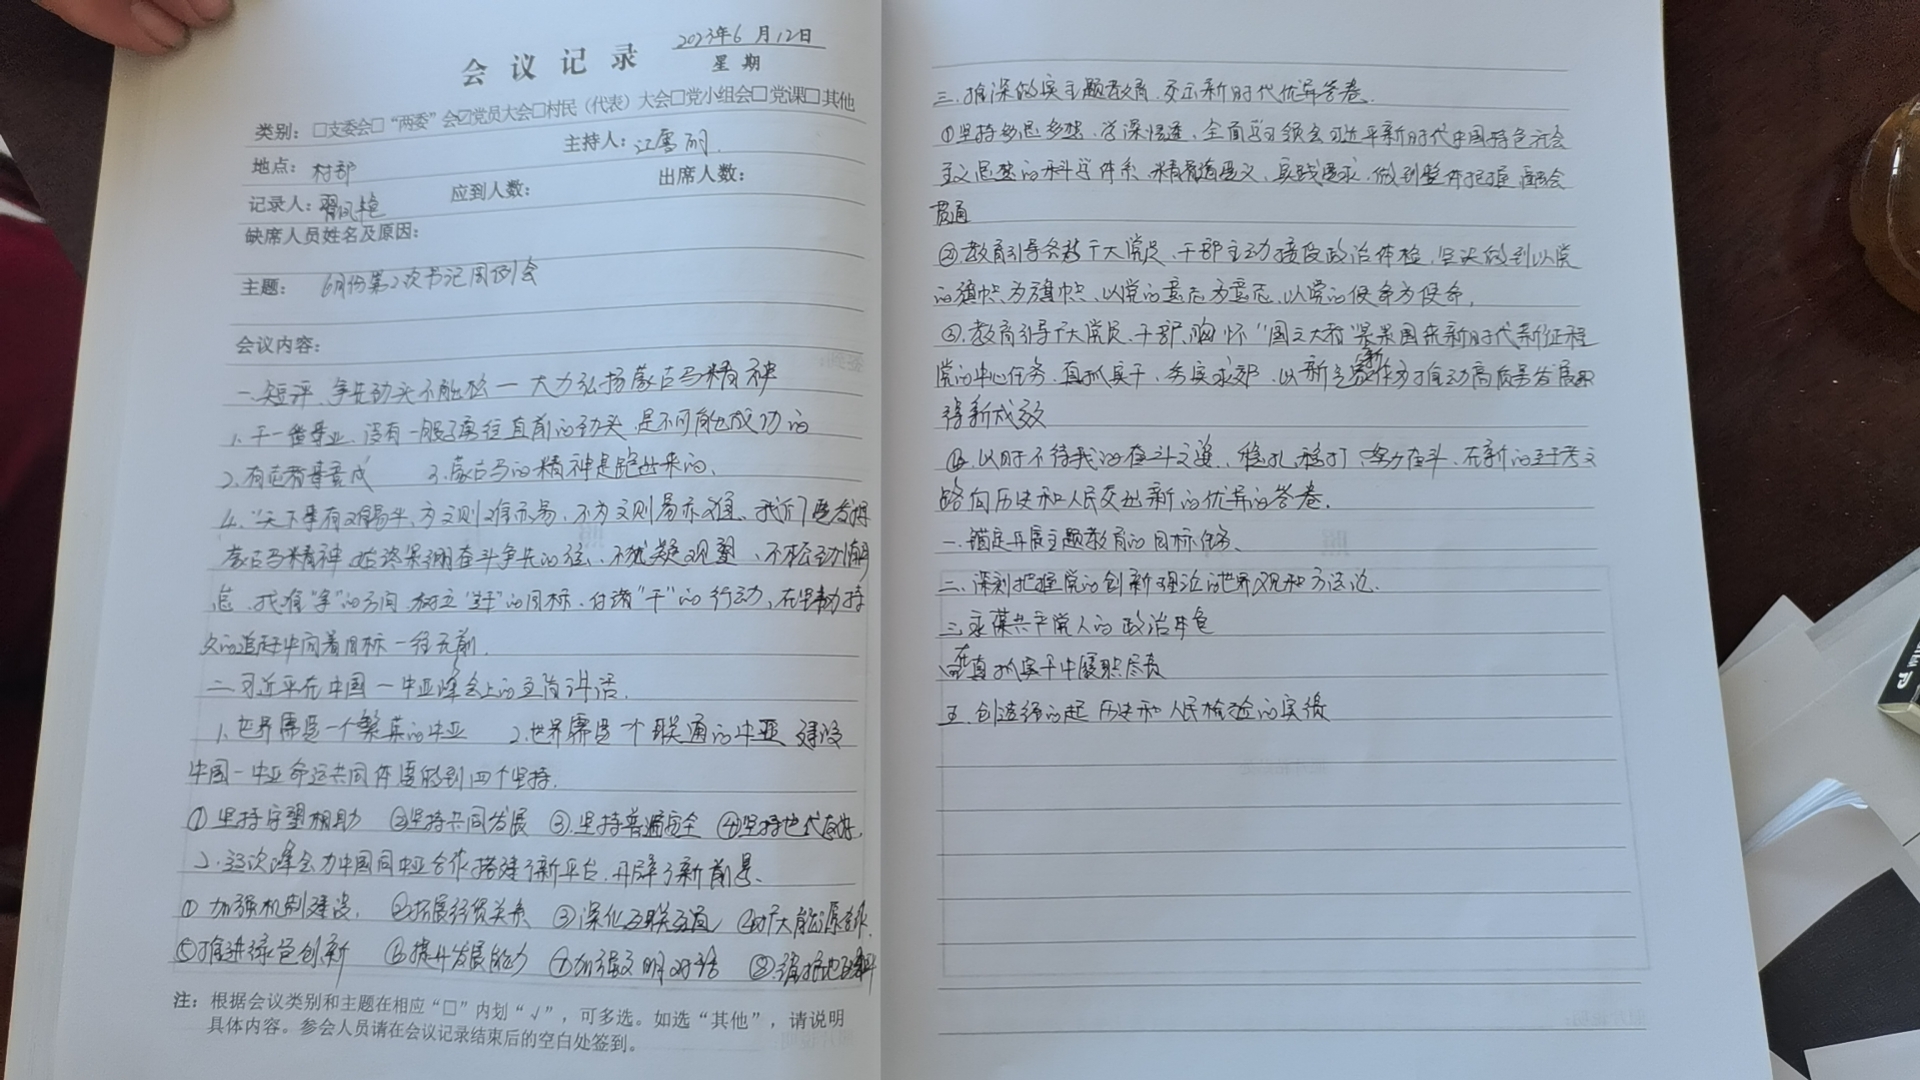 会议记录
2023年6月12日
星期
类别：□支委会□“两委”会☑党员大会□村民（代表）大会□党小组会□党课□其他
地点：村部 主持人：江雪丽
记录人： 应到人数： 出席人数：
缺席人员姓名及原因：
主题：6月份第2次书记周例会
会议内容：
一.短评.争先劲头不能松一大力弘扬蒙古马精神
1.干一番事业、没有一股子勇往直前的劲头.是不可能成功的
2.有志者事竟成 3.蒙古马的精神是跑出来的、
4.“天下事有难易乎,为之则难亦易,不为之则易亦难、我们要发扬
蒙古马精神.始终紧绷奋斗争先的弦、不犹疑观望、不松劲懈
怠.找准“争”的方向.树立“”的目标.付诸“干”的行动、在持
久的追赶中向着目标一往无前.
二.习近平在中国一中亚峰会上的主旨讲话.
1.世界需要一个繁荣的中亚 2.世界需要一个联通的中亚 建设
中国一中亚命运共同体要做到四个坚持.
①坚持守望相助 ②坚持共同发展 ③.坚持普遍安全 ④坚持世代友好.
2.这次峰会为中国同中亚合作搭建了新平台.开辟了新前景、
①加强机制建设. ②拓展经贸关系 ③深化互联互通 ④扩大能源合作.
⑤推进绿色创新 ⑥提升发展能力 ⑦加强文明对话 ⑧.维护地区和平
注：根据会议类别和主题在相应“□”内划“√”，可多选。如选“其他”，请说明
具体内容。参会人员请在会议记录结束后的空白处签到。
三.推深做实主题教育.交出新时代优异答卷.
①坚持多思多想.学深悟透、全面学习领会习近平新时代中国特色社会
主义思想的科学体系.精髓要义、实践要求.做到整体把握.融会
贯通
②.教育引导各级广大党员、干部主动接受政治体检,坚决做到以党
的旗帜为旗帜、以党的意志为意志、以党的使命为使命.
③.教育引导广大党员、干部、胸怀“国之大者”紧紧围绕新时代新征程
党的中心任务.真抓实干、务实求效、以新气象新作为推动高质量发展取
得新成效
④.以时不待我的奋斗之姿、稳扎稳打、努力奋斗.在新的赶考之
路向历史和人民交出新的优异的答卷.
一.锚定开展主题教育的目标任务、
二.深刻把握党的创新理论的世界观和方法论.
三.永葆共产党人的政治本色
四.在真抓实干中履职尽责
五.创造经的起历史和人民检验的实绩